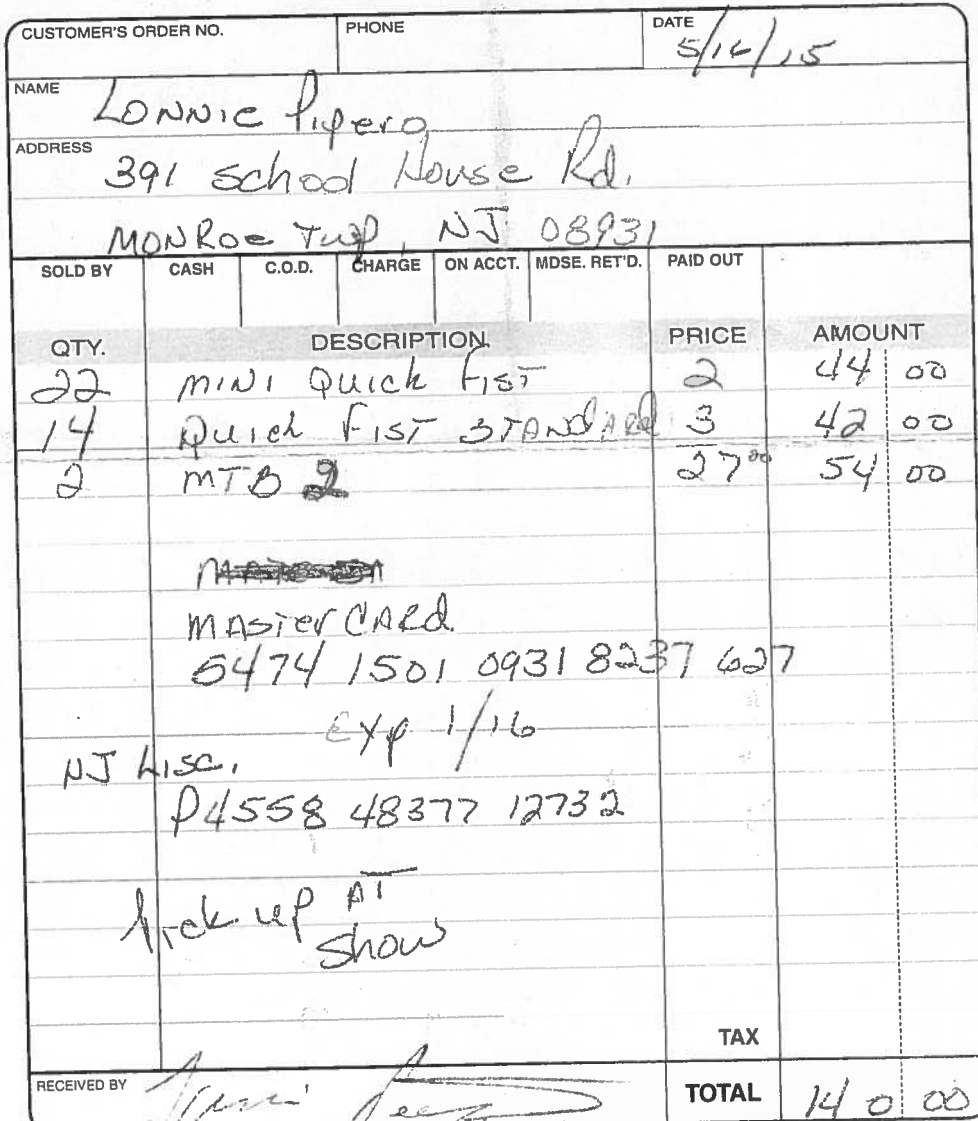 CUSTOMER'S ORDER NO. PHONE DATE 5/16/15
NAME LONNIE Pipero
ADDRESS
391 School House Rd.
MONROE Twp, NJ 08931
SOLD BY CASH C.O.D. CHARGE ON ACCT. MDSE. RET'D. PAID OUT
QTY. DESCRIPTION PRICE AMOUNT
22 MINI QUICK FIST 2 44 00
14 QUICK FIST STANDARD 3 42 00
2 MTB 2 27 00 54 00
MASTER CARD
5474 1501 0931 8237 627
EXP 1/16
NJ Lisc.
P4558 48377 12732
Pick up AT
Show
TAX
RECEIVED BY TOTAL 140 00